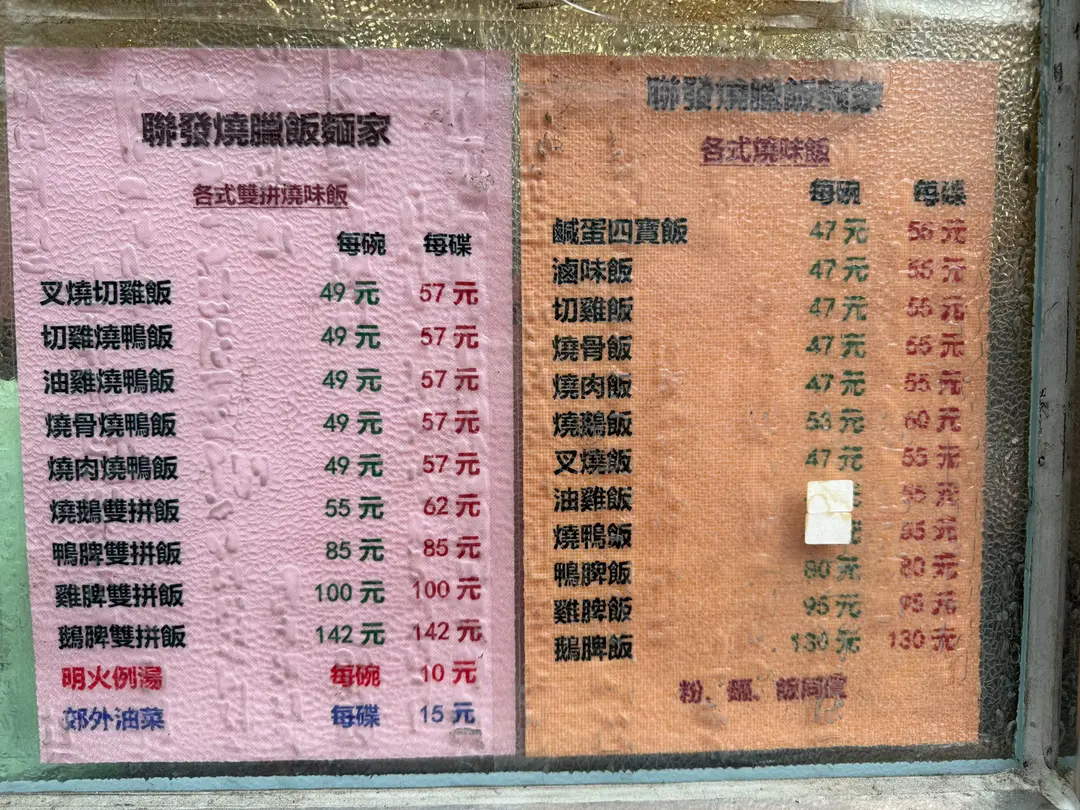 聯發燒臘飯麵家
各式雙拼燒味飯
每碗 每碟
叉燒切雞飯 49 元 57 元
切雞燒鴨飯 49 元 57 元
油雞燒鴨飯 49 元 57 元
燒骨燒鴨飯 49 元 57 元
燒肉燒鴨飯 49 元 57 元
燒鵝雙拼飯 55 元 62 元
鴨脾雙拼飯 85 元 85 元
雞脾雙拼飯 100 元 100 元
鵝脾雙拼飯 142 元 142 元
明火例湯 每碗 10 元
郊外油菜 每碟 15 元
聯發燒臘飯麵家
各式燒味飯
每碗 每碟
鹹蛋四寶飯 47 元 56 元
滷味飯 47 元 55 元
切雞飯 47 元 55 元
燒骨飯 47 元 55 元
燒肉飯 47 元 55 元
燒鵝飯 53 元 60 元
叉燒飯 47 元 55 元
油雞飯 55 元
燒鴨飯 元
鴨脾飯 80 元 80 元
雞脾飯 95 元 95 元
鵝脾飯 130 元 130 元
粉、麵、飯同價